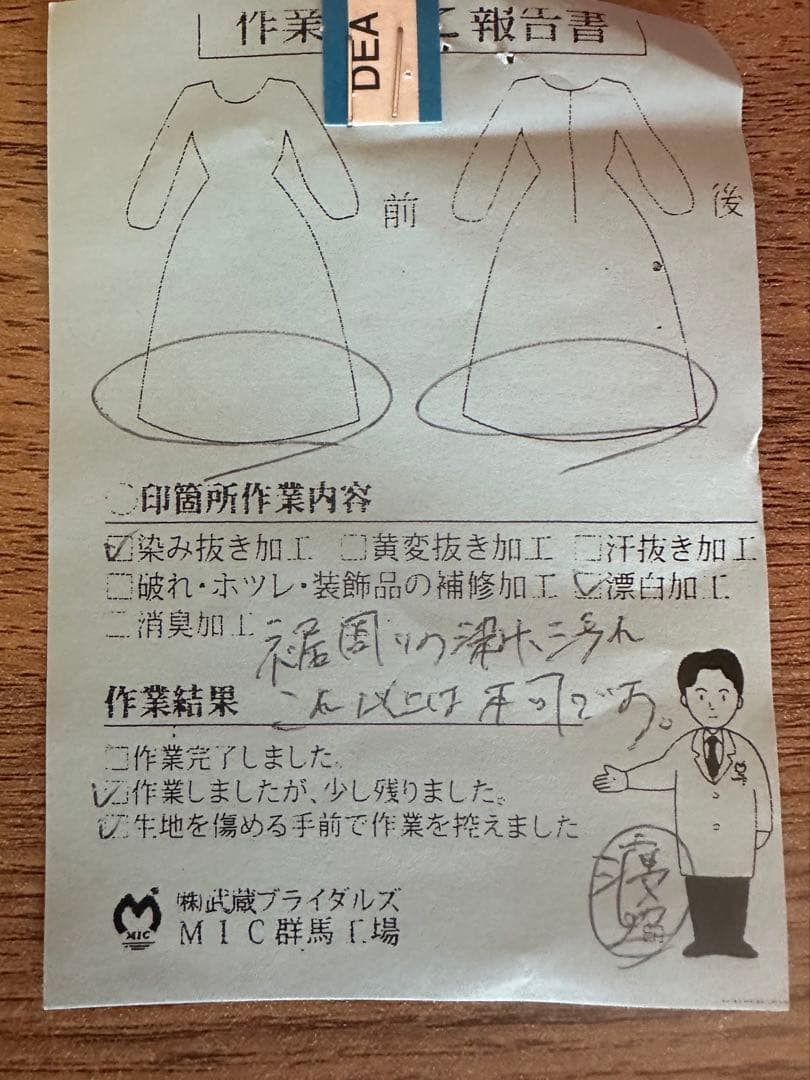 作業 報告書
DEA
前
後
◯印箇所作業内容
☑染み抜き加工 □黄変抜き加工 □汗抜き加工
□破れ・ホツレ・装飾品の補修加工 ☑漂白加工
□消臭加工
裾周りの染み、汚れ
これ以上は不可です。
作業結果
□作業完了しました。
☑作業しましたが、少し残りました。
☑生地を傷める手前で作業を控えました
㈱武蔵ブライダルズ
MIC
MIC群馬工場